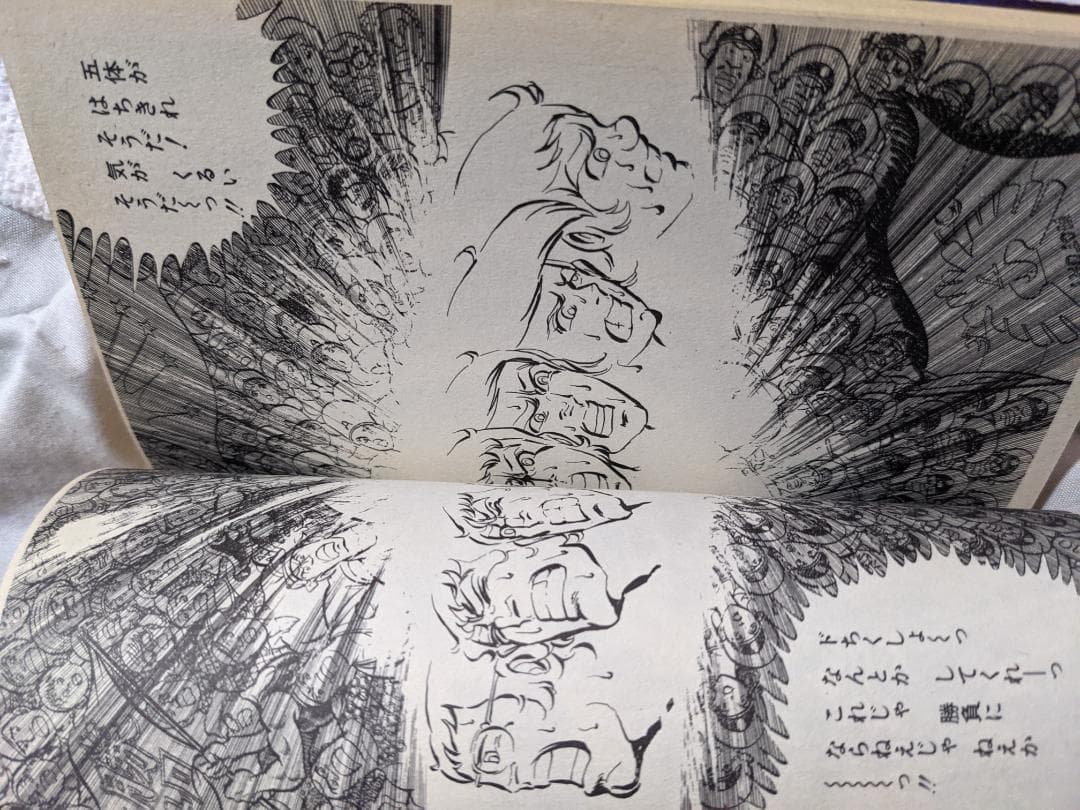 五体が
はちきれ
そうだ!
気が くるい
そうだ〜っ!!
ドちくしょ〜っ
なんとか してくれーっ
これじゃ 勝負に
ならねえじゃ ねえか
〜〜〜〜っ!!